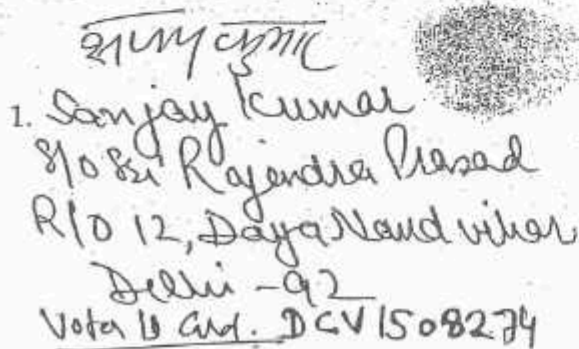 1. Sanjay Kumar
S/o Sri Rajendra Prasad
R/O 12, Daya Nand vihar
Delhi - 92
Voter ID Card. DGV1508274